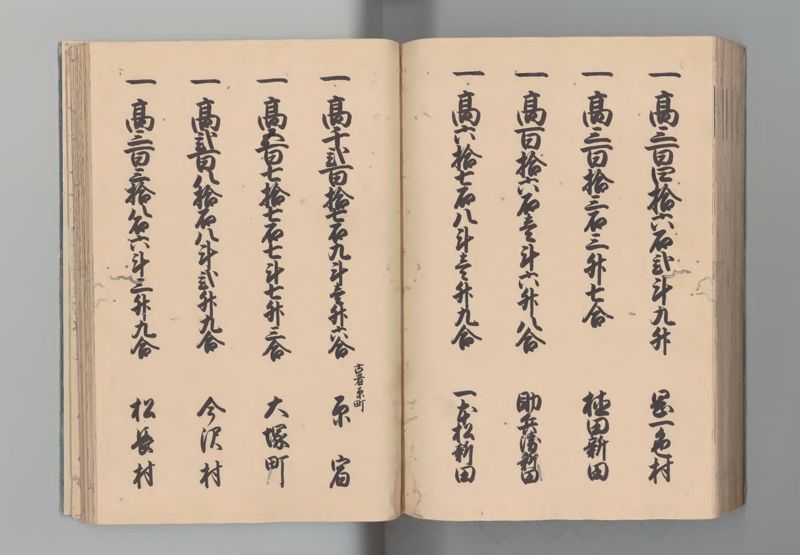 一 高三百四拾六石弐斗九升 里一色村
一 高三百拾三石三升七合 植田新田
一 高百拾六石壱斗六升八合 助兵衛新田
一 高六拾七石八斗壱升九合 一本松新田
一 高千弐百拾七石九斗壱升六合 古者原町 原宿
一 高百七拾七石七斗七升三合 大塚町
一 高弐百八拾石八斗弐升九合 今沢村
一 高三百三拾八石六斗三升九合 松長村